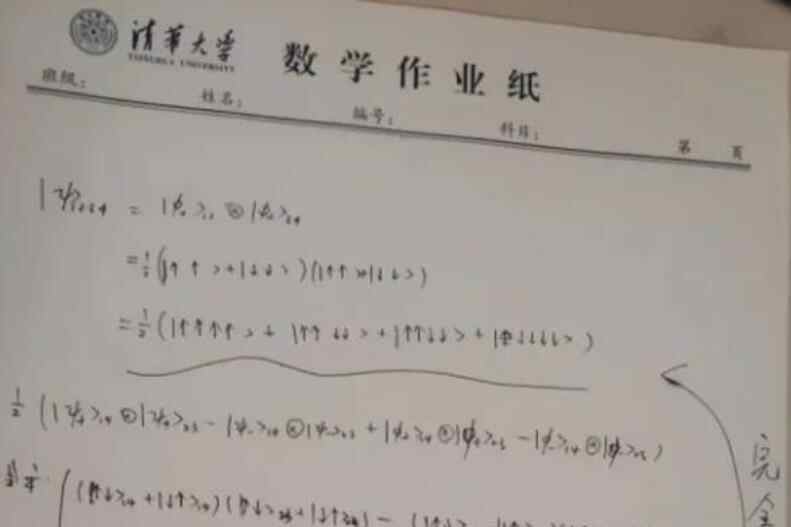 清华大学
TSINGHUA UNIVERSITY
数学作业纸
班级： 姓名： 编号： 科目： 第 页
|ψ>₁₂₃₄ = |φ₊>₁₂ ⊗ |φ₊>₃₄
= ½(|↑↑> + |↓↓>)(|↑↑> + |↓↓>)
= ½(|↑↑↑↑> + |↑↑↓↓> + |↑↑↓↓> + |↓↓↓↓>)
½(|ψ₊>₁₄ ⊗ |ψ₊>₂₃ - |ψ₋>₁₄ ⊗ |ψ₋>₂₃ + |φ₊>₁₄ ⊗ |φ₊>₂₃ - |φ₋>₁₄ ⊗ |φ₋>₂₃)
((|↑↓>₁₄ + |↓↑>₁₄)(|↑↓>₂₃ + |↓↑>₂₃) -
完全